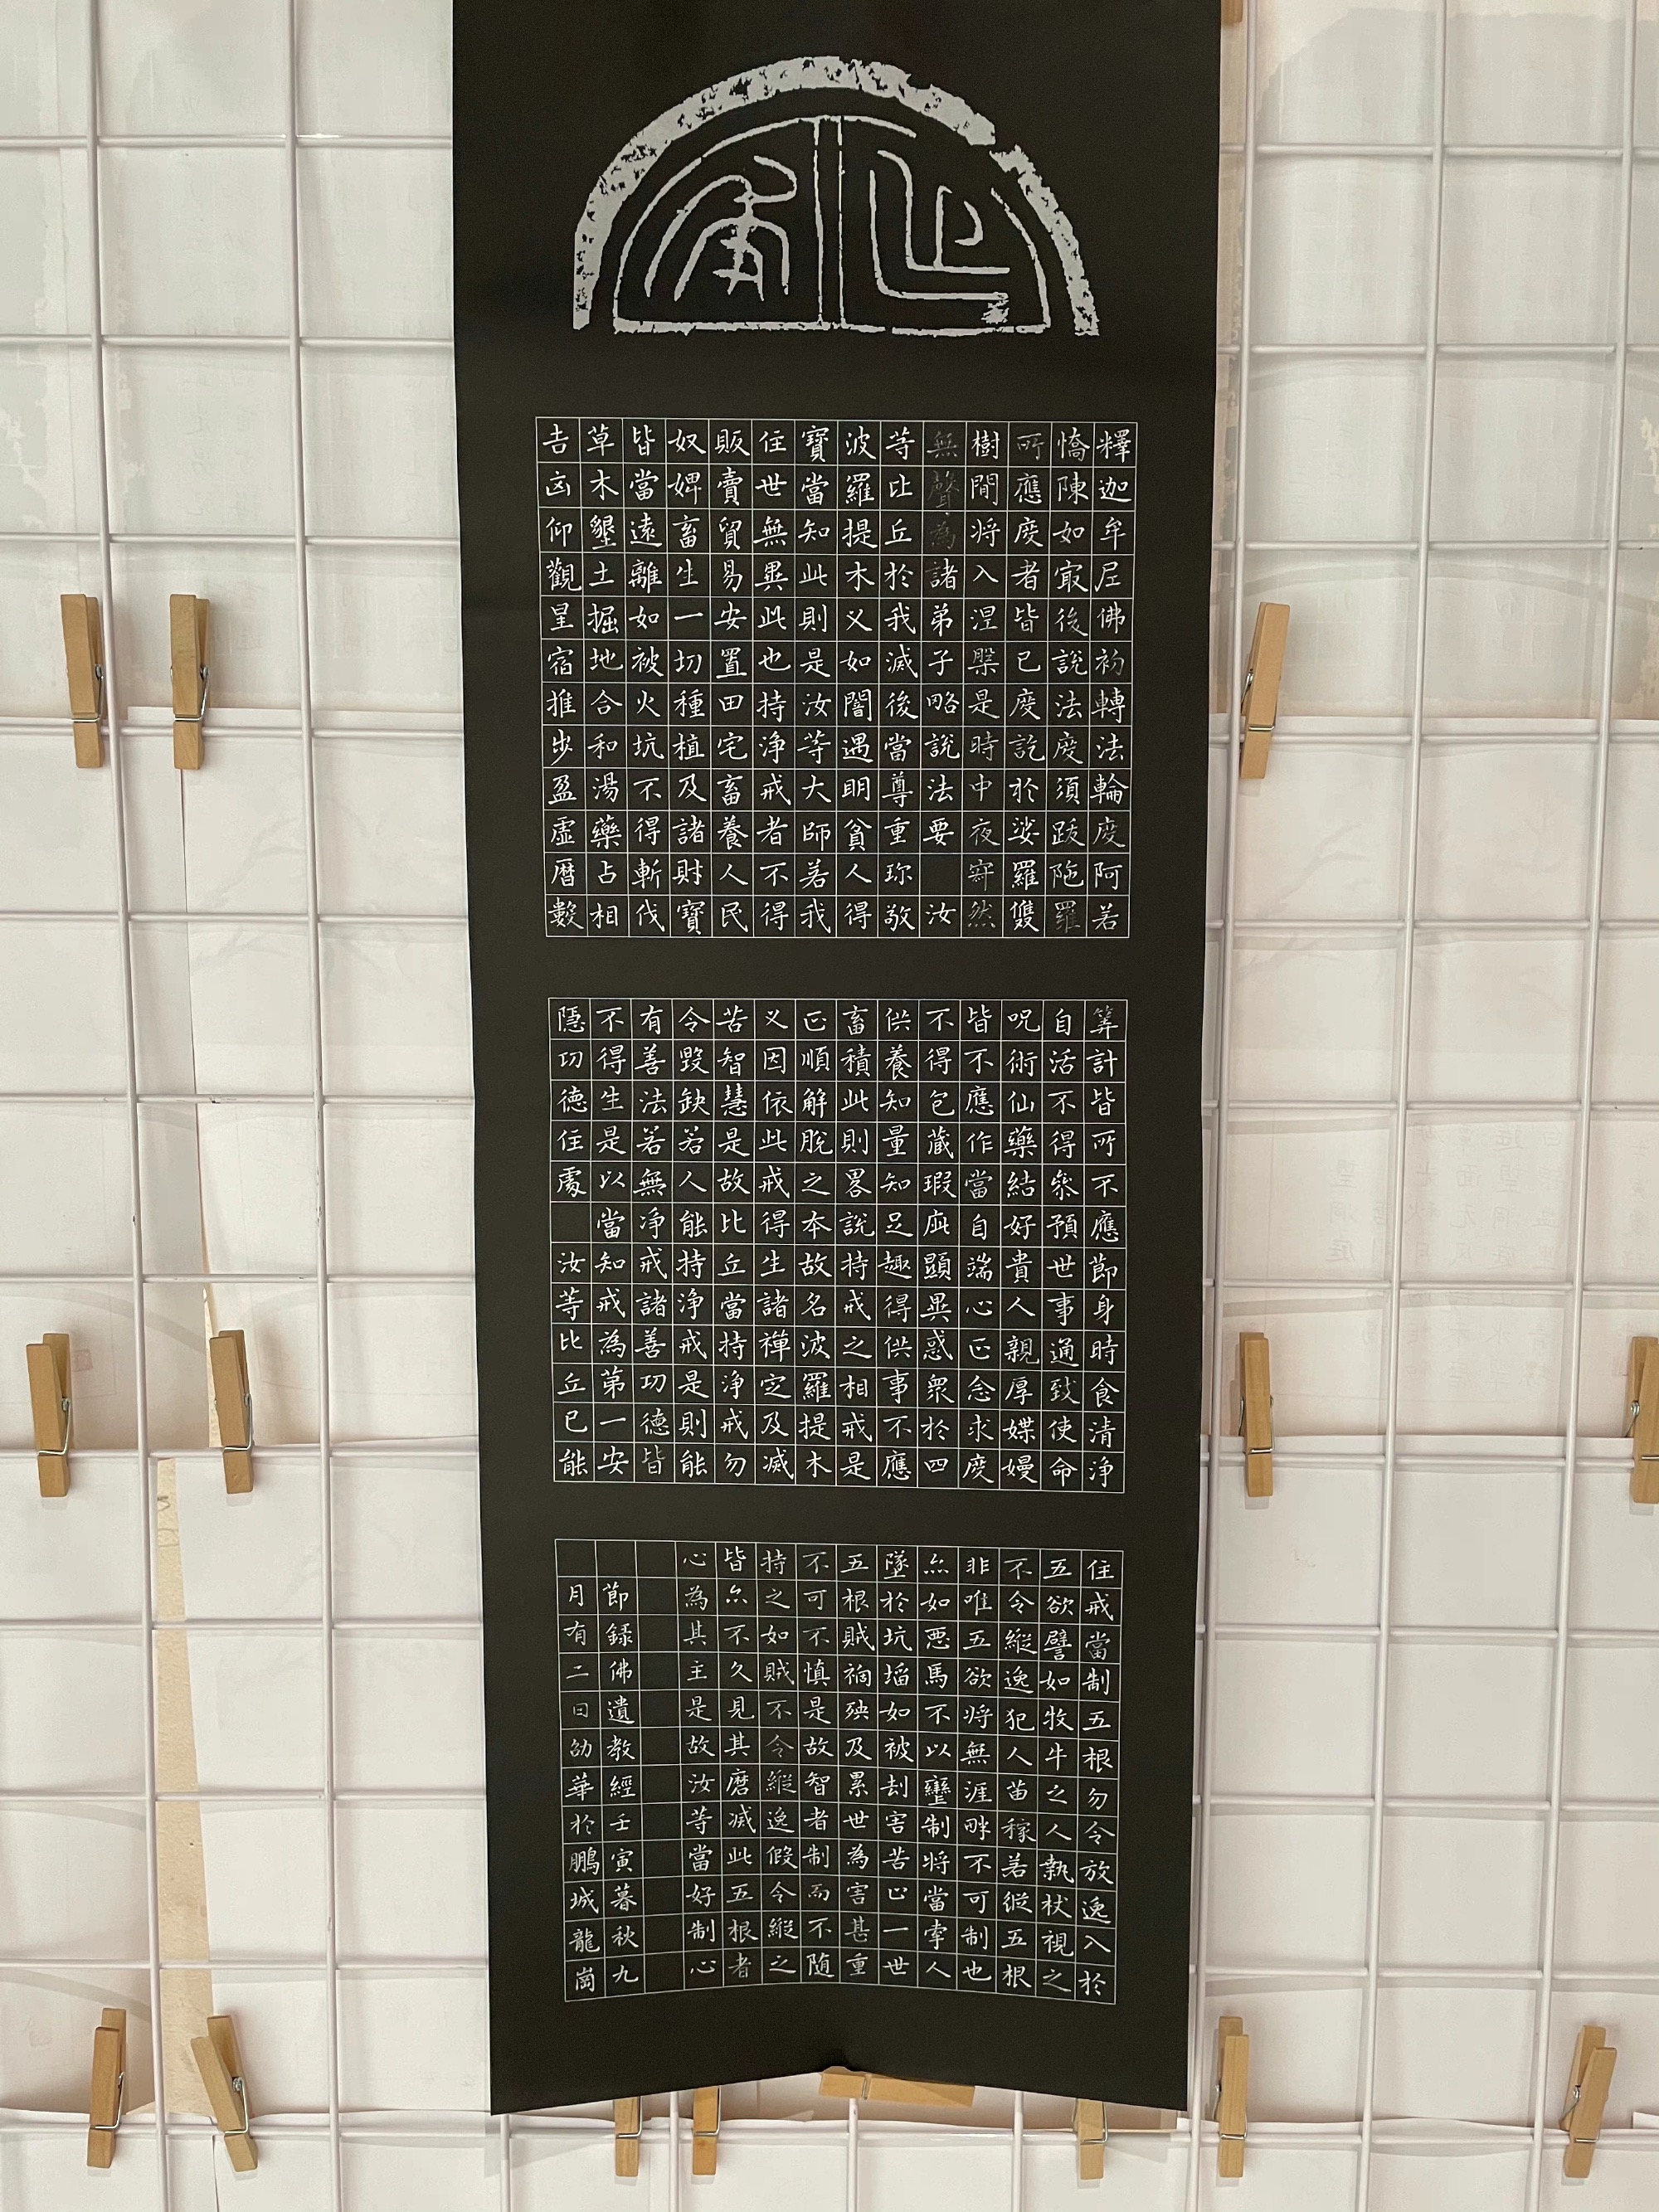 釋迦牟尼佛初轉法輪度阿若
憍陳如㝡後説法度須跋陁羅
所應度者皆已度訖於娑羅雙
樹間将入涅槃是時中夜寂然
無聲為諸弟子略説法要 汝
等比丘於我滅後當尊重珎敬
波羅提木义如闇遇明貧人得
寶當知此則是汝等大師若我
住世無異此也持浄戒者不得
販賣貿易安置田宅畜養人民
奴婢畜生一切種植及諸財寶
皆當遠離如被火坑不得斬伐
草木墾土掘地合和湯藥占相
吉凶仰觀星宿推步盈虛曆數
筭計皆所不應節身時食清浄
自活不得叅預世事通致使命
呪術仙藥結好貴人親厚媟嫚
皆不應作當自端心正念求度
不得包藏瑕疵顯異惑衆於四
供養知量知足趣得供事不應
畜積此則畧説持戒之相戒是
正順解脫之本故名波羅提木
义因依此戒得生諸禪定及滅
苦智慧是故比丘當持浄戒勿
令毀缺若人能持浄戒是則能
有善法若無浄戒諸善功德皆
不得生是以當知戒為第一安
隱功德住處 汝等比丘已能
住戒當制五根勿令放逸入於
五欲譬如牧牛之人執杖視之
不令縱逸犯人苗稼若縱五根
非唯五欲将無涯畔不可制也
亦如惡馬不以轡制将當牽人
墜於坑埳如被劫害苦止一世
五根賊禍殃及累世為害甚重
不可不慎是故智者制而不随
持之如賊不令縱逸假令縱之
皆亦不久見其磨滅此五根者
心為其主是故汝等當好制心
節録佛遺教經壬寅暮秋九
月有二日劭華於鵬城龍崗